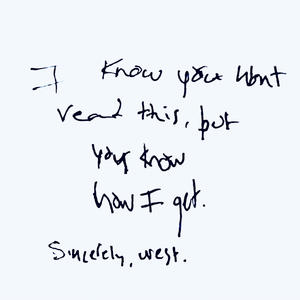 I know you wont
read this, but
you know
how I get.
Sincerely, west.